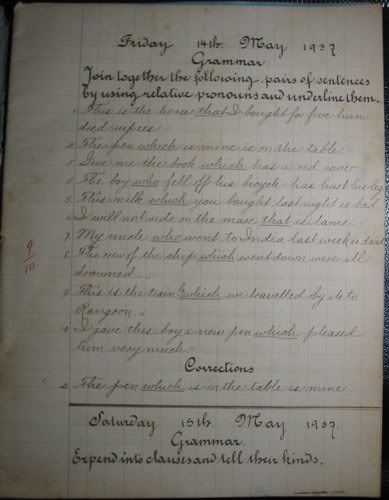 Friday 14th. May 1937.
Grammar
Join together the following pairs of sentences
by using relative pronouns and underline them.
1. This is the horse that I bought for five hun
dred rupees
2. The pen which is mine is on the table
3. Give me the book which has a red cover
4. The boy who fell off his bicycle has hurt his leg
5. This milk which you bought last night is bad
6. I will not ride on the mare that is lame.
7. My uncle who went to India last week is dead
8. The crew of the ship which went down were all
drowned.
9/10
9. This is the train which we travelled by it to
Rangoon.
10. I gave this boy a new pen which pleased
him very much
Corrections
2. The pen which is on the table is mine
Saturday 15th. May 1937.
Grammar.
Expend into clauses and tell their kinds.